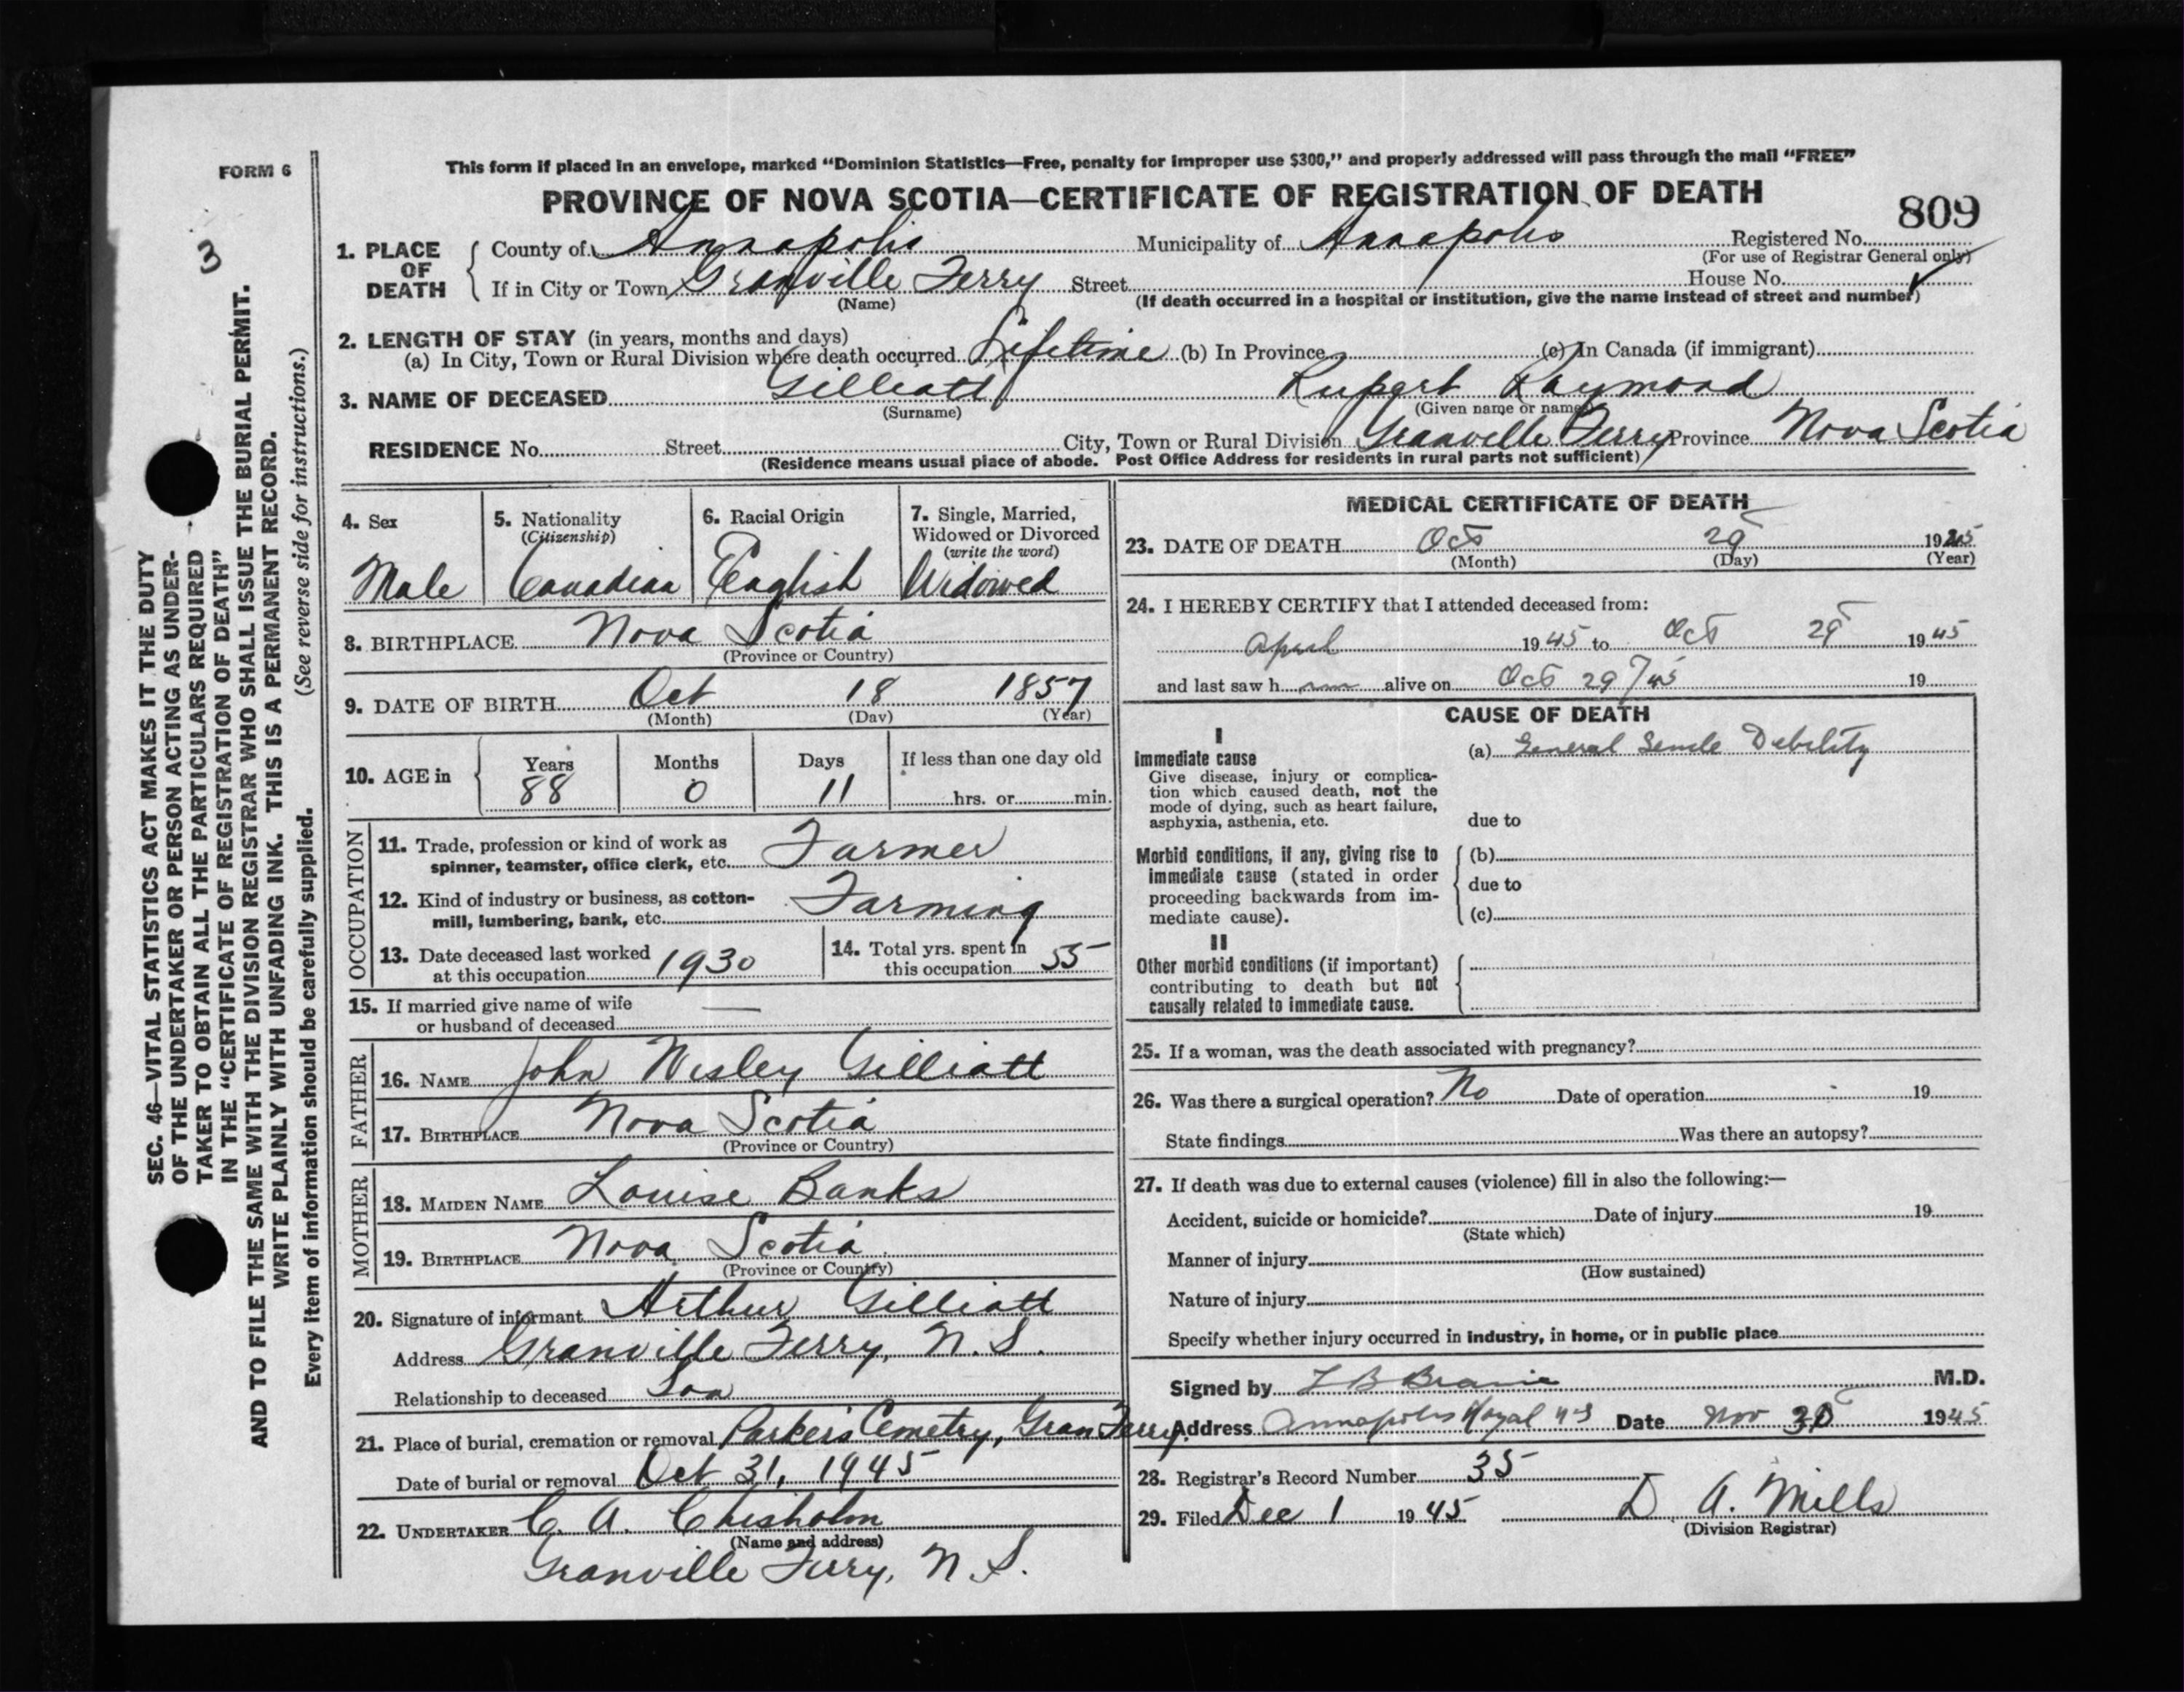 FORM 6
This form if placed in an envelope, marked “Dominion Statistics—Free, penalty for improper use $300,” and properly addressed will pass through the mail “FREE”
PROVINCE OF NOVA SCOTIA—CERTIFICATE OF REGISTRATION OF DEATH
809
3
SEC. 46—VITAL STATISTICS ACT MAKES IT THE DUTY
OF THE UNDERTAKER OR PERSON ACTING AS UNDER-
TAKER TO OBTAIN ALL THE PARTICULARS REQUIRED
IN THE “CERTIFICATE OF REGISTRATION OF DEATH”
AND TO FILE THE SAME WITH THE DIVISION REGISTRAR WHO SHALL ISSUE THE BURIAL PERMIT.
WRITE PLAINLY WITH UNFADING INK. THIS IS A PERMANENT RECORD.
Every item of information should be carefully supplied. (See reverse side for instructions.)
1. PLACE OF DEATH
County of Annapolis Municipality of Annapolis Registered No.
(For use of Registrar General only)
If in City or Town Granville Ferry Street House No.
(Name) (If death occurred in a hospital or institution, give the name instead of street and number)
2. LENGTH OF STAY (in years, months and days)
(a) In City, Town or Rural Division where death occurred Lifetime (b) In Province (c) In Canada (if immigrant)
3. NAME OF DECEASED Gilliatt Rupert Raymond
(Surname) (Given name or names)
RESIDENCE No. Street City, Town or Rural Division Granville Ferry Province Nova Scotia
(Residence means usual place of abode. Post Office Address for residents in rural parts not sufficient)
4. Sex
Male
5. Nationality
(Citizenship)
Canadian
6. Racial Origin
English
7. Single, Married,
Widowed or Divorced
(write the word)
Widowed
8. BIRTHPLACE Nova Scotia
(Province or Country)
9. DATE OF BIRTH Oct 18 1857
(Month) (Day) (Year)
10. AGE in
Years Months Days If less than one day old
88 0 11 hrs. or min.
OCCUPATION
11. Trade, profession or kind of work as
spinner, teamster, office clerk, etc. Farmer
12. Kind of industry or business, as cotton-
mill, lumbering, bank, etc. Farming
13. Date deceased last worked
at this occupation 1930
14. Total yrs. spent in
this occupation 55
15. If married give name of wife
or husband of deceased —
FATHER
16. NAME John Wesley Gilliatt
17. BIRTHPLACE Nova Scotia
(Province or Country)
MOTHER
18. MAIDEN NAME Louise Banks
19. BIRTHPLACE Nova Scotia
(Province or Country)
20. Signature of informant Arthur Gilliatt
Address Granville Ferry, N.S.
Relationship to deceased Son
21. Place of burial, cremation or removal Parker's Cemetry, Gran Ferry.
Date of burial or removal Oct 31, 1945
22. UNDERTAKER C. A. Chisholm
(Name and address)
Granville Ferry, N.S.
MEDICAL CERTIFICATE OF DEATH
23. DATE OF DEATH Oct 29 1945
(Month) (Day) (Year)
24. I HEREBY CERTIFY that I attended deceased from:
April 1945 to Oct 29 1945
and last saw h im alive on Oct 29/45 19
CAUSE OF DEATH
I
Immediate cause
Give disease, injury or complica-
tion which caused death, not the
mode of dying, such as heart failure,
asphyxia, asthenia, etc.
(a) General Senile Debility
due to
Morbid conditions, if any, giving rise to
immediate cause (stated in order
proceeding backwards from im-
mediate cause).
(b)
due to
(c)
II
Other morbid conditions (if important)
contributing to death but not
causally related to immediate cause.
25. If a woman, was the death associated with pregnancy?
26. Was there a surgical operation? No Date of operation 19
State findings Was there an autopsy?
27. If death was due to external causes (violence) fill in also the following:—
Accident, suicide or homicide? Date of injury 19
(State which)
Manner of injury
(How sustained)
Nature of injury
Specify whether injury occurred in industry, in home, or in public place
Signed by M.D.
Address Annapolis Royal NS Date Nov 1945
28. Registrar's Record Number 35
29. Filed Dec 1 1945 D A. Mills
(Division Registrar)